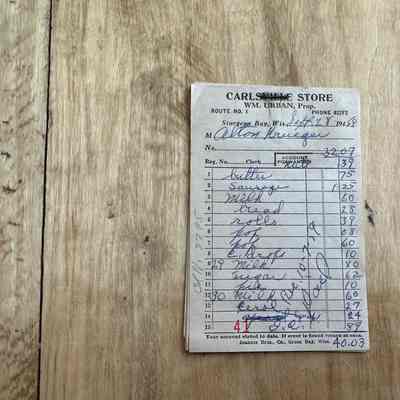 CARLSVILLE STORE
WM. URBAN, Prop.
ROUTE NO. 1 PHONE 822F2
Sturgeon Bay, Wis. Sept 28 1949
M Alton Krueger
No. 32.07
Reg. No. Clerk ACCOUNT FORWARDED 39
1 butter 75
2 Sausage 1 25
3 Milk 60
4 bread 28
5 rolls 39
6 pop 68
7 pop 60
8 C. drops 10
29 Milk 80
10 sugar 62
11 10
30 Milk 60
13 27
14 24
15 41 89
Your account stated to date. If error is found return at once.
Jeannis Bros., Co., Green Bay, Wis. 40.03
Paid